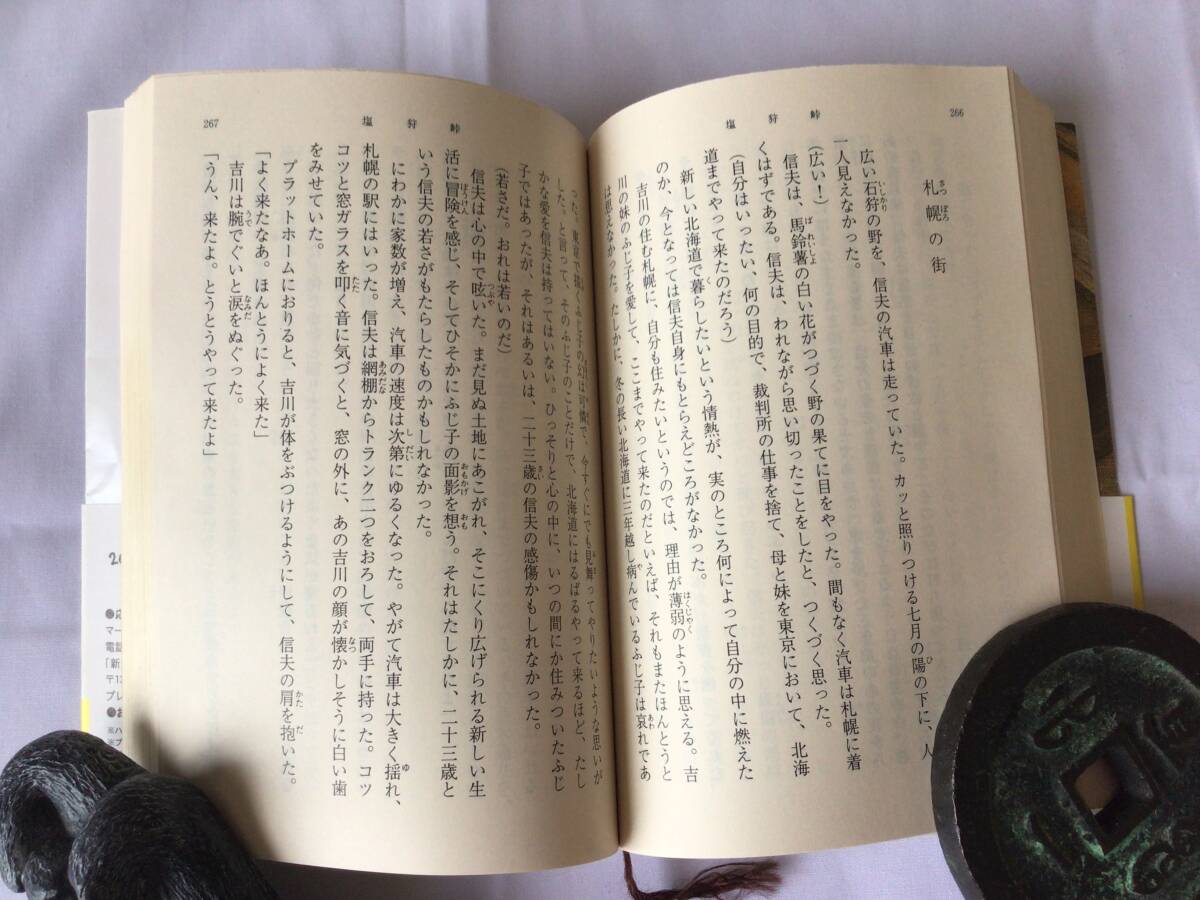 266
塩狩峠
札幌の街
広い石狩の野を、信夫の汽車は走っていた。カッと照りつける七月の陽の下に、人
一人見えなかった。
(広い！)
信夫は、馬鈴薯の白い花がつづく野の果てに目をやった。間もなく汽車は札幌に着
くはずである。信夫は、われながら思い切ったことをしたと、つくづく思った。
(自分はいったい、何の目的で、裁判所の仕事を捨て、母と妹を東京において、北海
道までやって来たのだろう)
新しい北海道で暮らしたいという情熱が、実のところ何によって自分の中に燃えた
のか、今となっては信夫自身にもとらえどころがなかった。
吉川の住む札幌に、自分も住みたいというのでは、理由が薄弱のように思える。吉
川の妹のふじ子を愛して、ここまでやって来たのだといえば、それもまたほんとうと
は思えなかった。たしかに、冬の長い北海道に三年越し病んでいるふじ子は哀れであ
267
塩狩峠
った。東京で描くふじ子の幻は可憐で、今すぐにでも見舞ってやりたいような思いが
した。と言って、そのふじ子のことだけで、北海道にはるばるやって来るほど、たし
かな愛を信夫は持ってはいない。ひっそりと心の中に、いつの間にか住みついたふじ
子ではあったが、それはあるいは、二十三歳の信夫の感傷かもしれなかった。
(若さだ。おれは若いのだ)
信夫は心の中で呟いた。まだ見ぬ土地にあこがれ、そこにくり広げられる新しい生
活に冒険を感じ、そしてひそかにふじ子の面影を想う。それはたしかに、二十三歳と
いう信夫の若さがもたらしたものかもしれなかった。
にわかに家数が増え、汽車の速度は次第にゆるくなった。やがて汽車は大きく揺れ、
札幌の駅にはいった。信夫は網棚からトランク二つをおろして、両手に持った。コツ
コツと窓ガラスを叩く音に気づくと、窓の外に、あの吉川の顔が懐かしそうに白い歯
をみせていた。
プラットホームにおりると、吉川が体をぶつけるようにして、信夫の肩を抱いた。
「よく来たなあ。ほんとうによく来た」
吉川は腕でぐいと涙をぬぐった。
「うん、来たよ。とうとうやって来たよ」